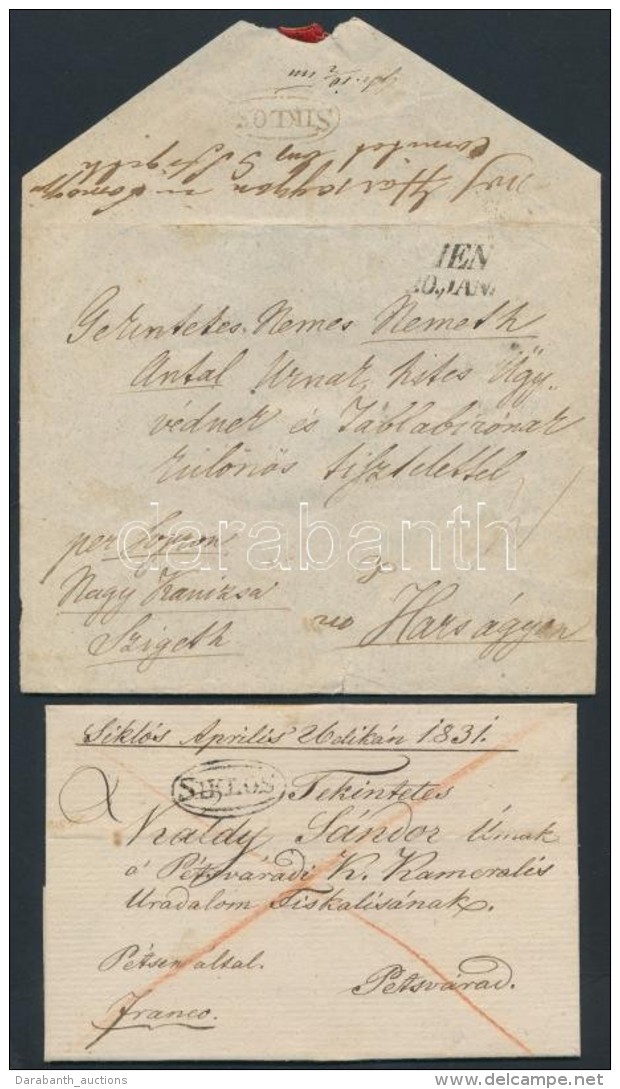 SIKLOS
IEN
20.JAN.
Tekintetes Nemes Nemeth
Antal Urnak, hites Ügy-
védnek és Táblabírónak
különös tisztelettel
per Sopron
Nagy Kanizsa
Szigeth
Harságyon
darabanth
Siklós Aprilis 26dikán 1831.
SIKLOS
Tekintetes
Kaldy Sándor Úrnak
a' Pétsváradi K. Kameralis
Uradalom Fiskalisának.
Pétsen által.
Petsvárad.
Franco.
Darabanth_auctions
www.delcampe.net